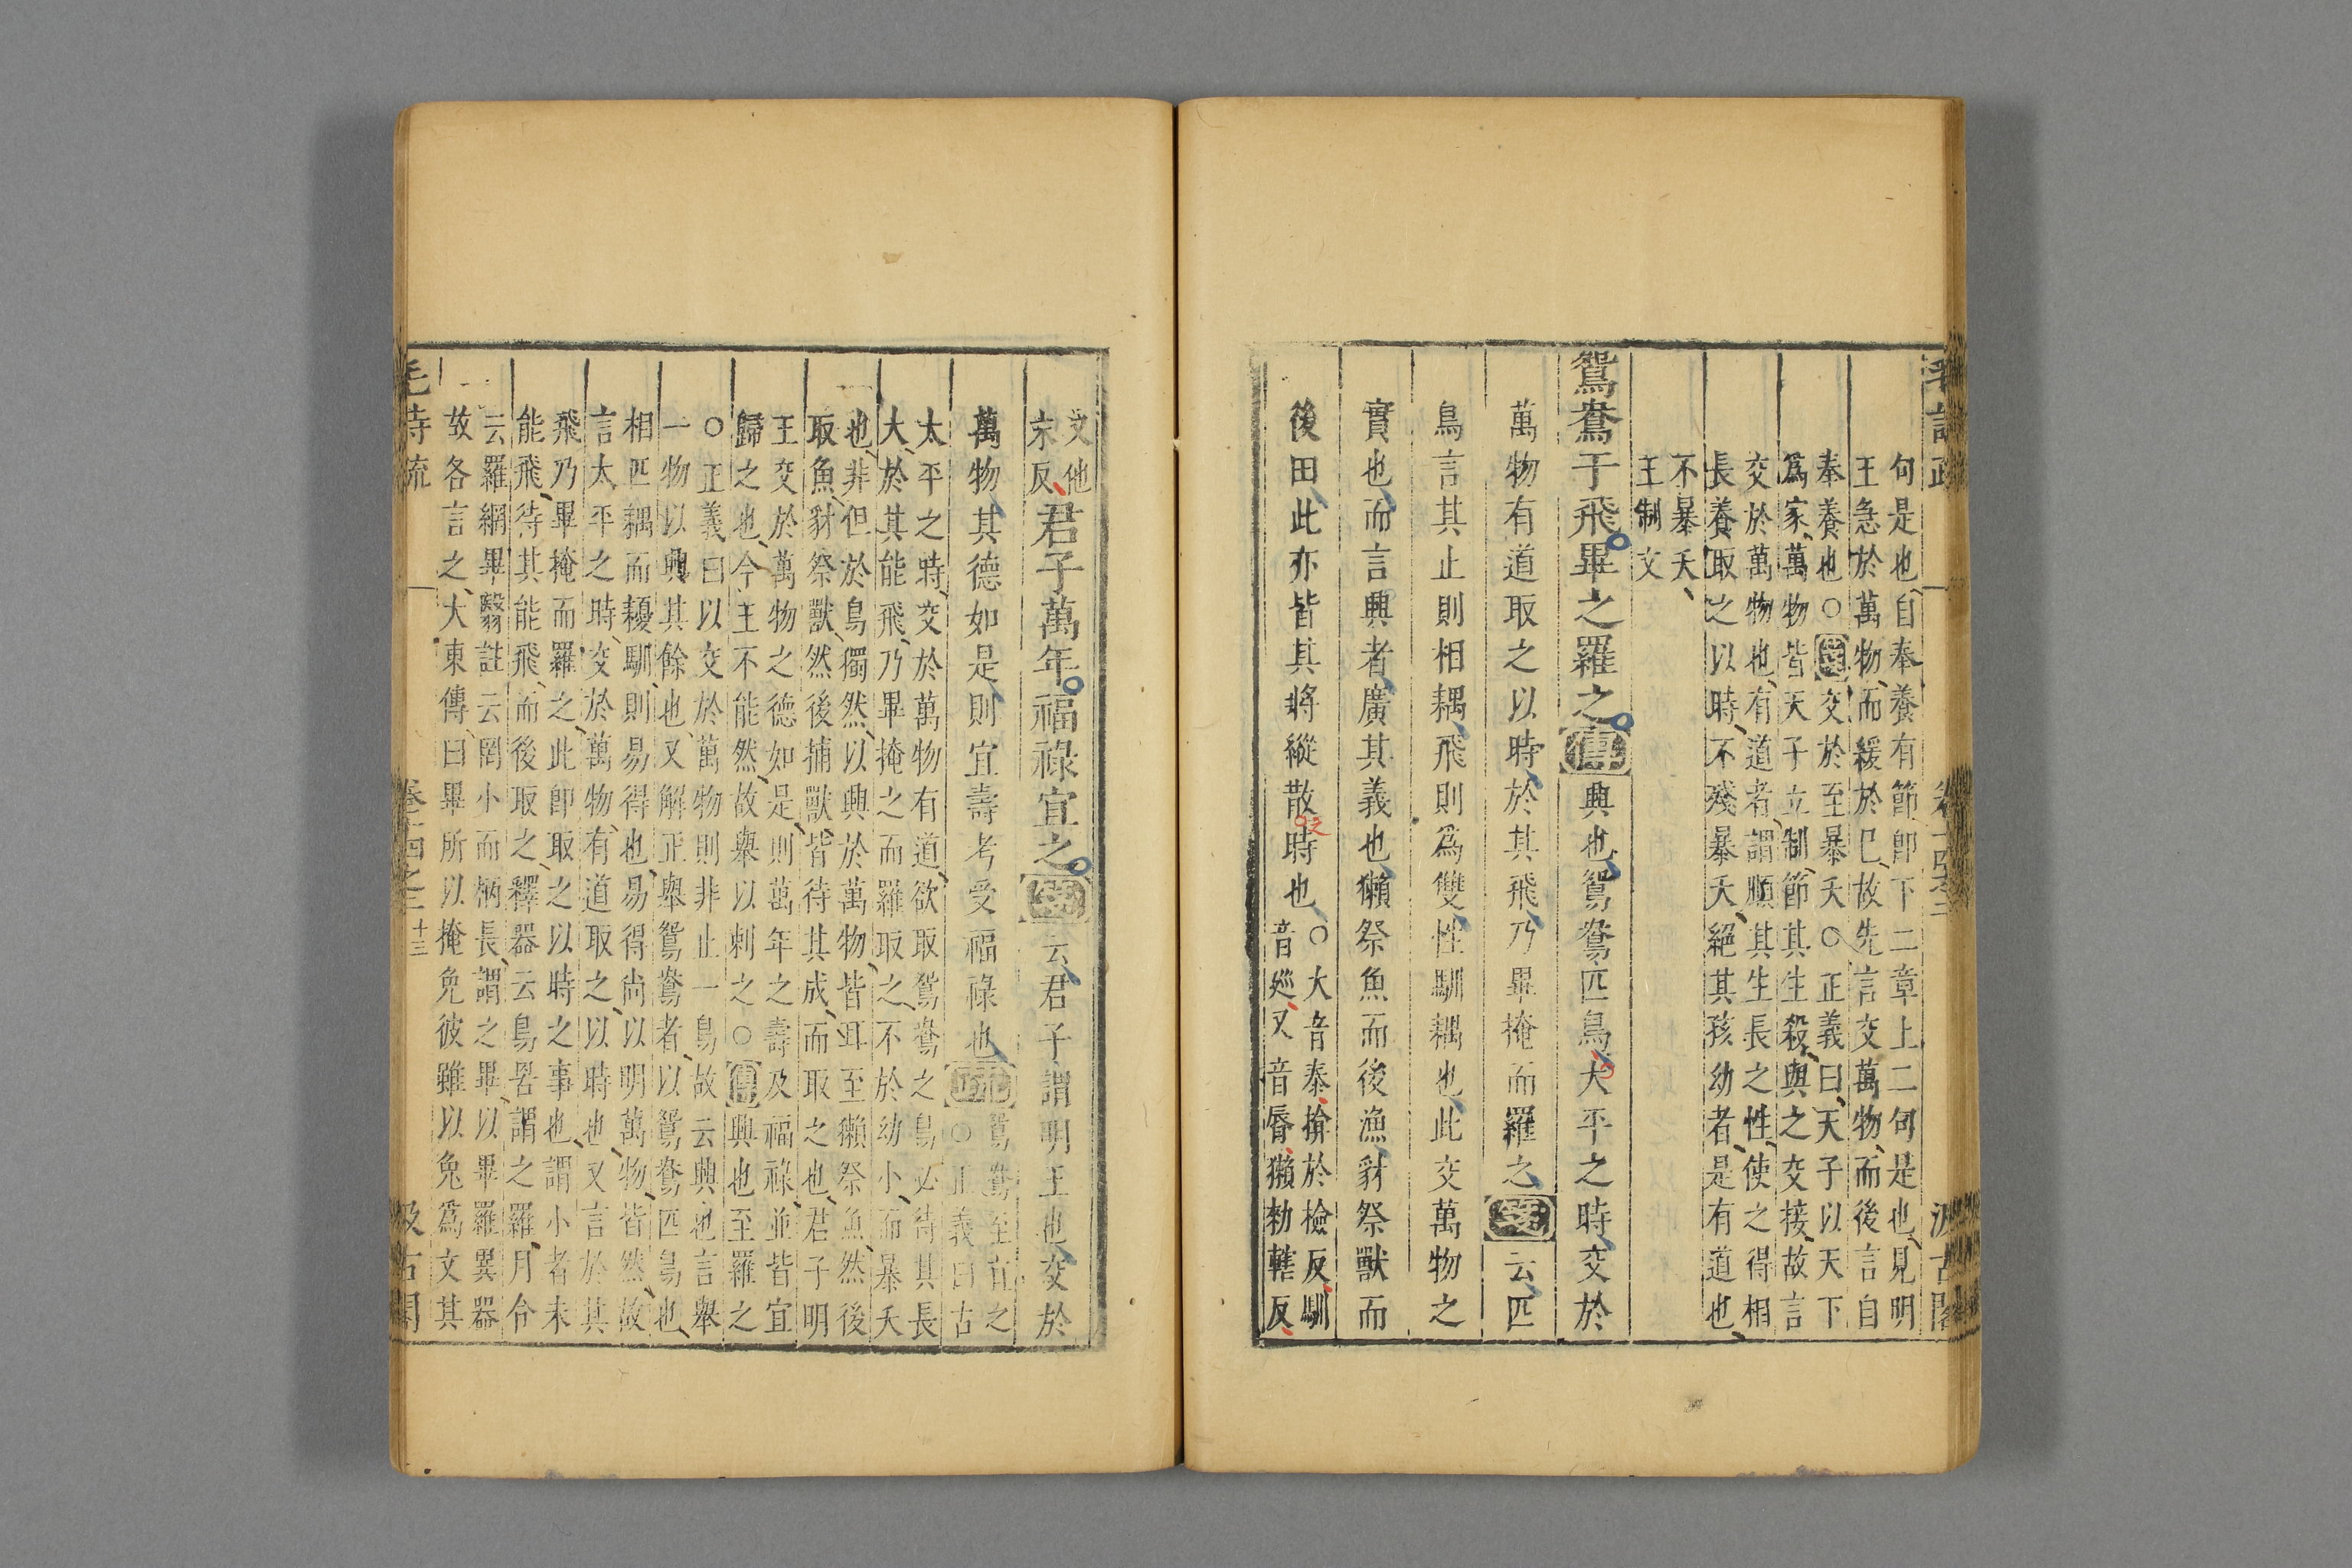 句是也自奉養有節卽下二章上二句是也見明
王急於萬物而緩於己故先言交萬物而後言自
奉養也○箋交於至暴夭○正義曰天子以天下
爲家萬物皆天子立制節其生殺與之交接故言
交於萬物也有道者謂順其生長之性使之得相
長養取之以時不殘暴夭絕其孩幼者是有道也
不暴夭
王制文
鴛鴦于飛畢之羅之傳興也鴛鴦匹鳥大平之時交於
萬物有道取之以時於其飛乃畢掩而羅之箋云匹
鳥言其止則相耦飛則爲雙性馴耦也此交萬物之
實也而言興者廣其義也獺祭魚而後漁豺祭獸而
後田此亦皆其將縱散時也○大音泰揜於檢反馴
之
音巡又音脣獺勑轄反
又他
末反君子萬年福祿宜之箋云君子謂明王也交於
萬物其德如是則宜壽考受福祿也疏鴛鴦至宜之
○正義曰古
太平之時交於萬物有道欲取鴛鴦之鳥必待其長
大於其能飛乃畢掩之而羅取之不於幼小而暴夭
也非但於鳥獨然以興於萬物皆耳至獺祭魚然後
取魚豺祭獸然後捕獸皆待其成而取之也君子明
王交於萬物之德如是則萬年之壽及福祿並皆宜
歸之也今王不能然故舉以刺之○傳興也至羅之
○正義曰以交於萬物則非止一鳥故云興也言舉
一物以興其餘也又解正舉鴛鴦者以鴛鴦匹鳥也
相匹耦而擾馴則易得也易得尚以明萬物皆然故
言太平之時交於萬物有道取之以時也又言於其
飛乃畢掩而羅之此卽取之以時之事也謂小者未
能飛待其能飛而後取之釋器云鳥罟謂之羅月令
云羅網畢翳註云罔小而柄長謂之畢以畢羅異器
故各言之大東傳曰畢所以掩兔彼雖以兔爲文其
毛詩疏
卷十四之二
十三
汲古閣